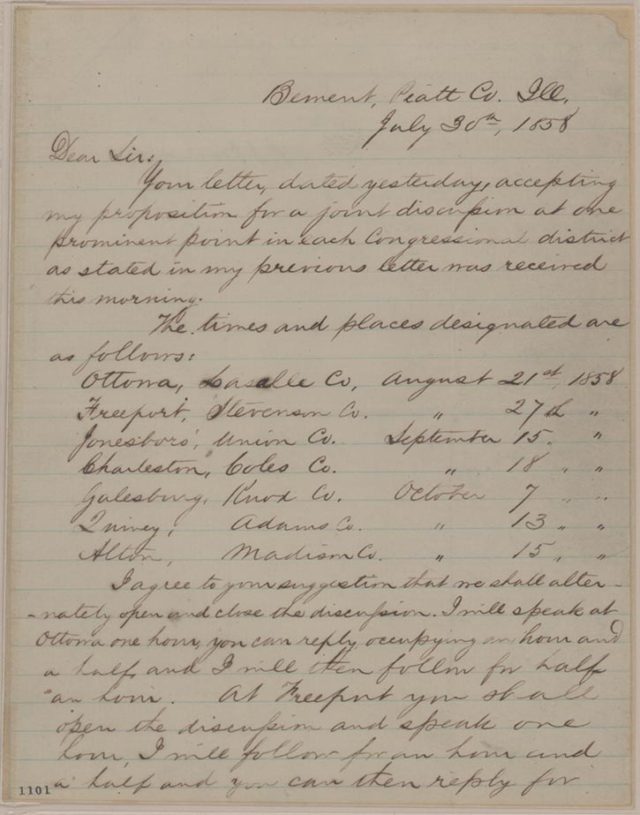 Bement, Piatt Co. Ill.
July 30th, 1858
Dear Sir;
Your letter, dated yesterday, accepting
my proposition for a joint discussion at one
prominent point in each Congressional district
as stated in my previous letter was received
this morning.
The times and places designated are
as follows:
Ottowa, Lasalle Co. August 21st, 1858
Freeport, Stevenson Co. " 27th "
Jonesboro', Union Co. September 15. "
Charleston, Coles Co. " 18 " "
Galesburg, Knox Co. October 7 " "
Quincy, Adams Co. " 13 " "
Alton, Madison Co. " 15 " "
I agree to your suggestion that we shall alter-
-nately open and close the discussion. I will speak at
Ottowa one hour, you can reply, occupying an hour and
a half, and I will then follow for half
an hour. At Freeport you shall
open the discussion and speak one
hour, I will follow for an hour and
a half and you can then reply for
1101